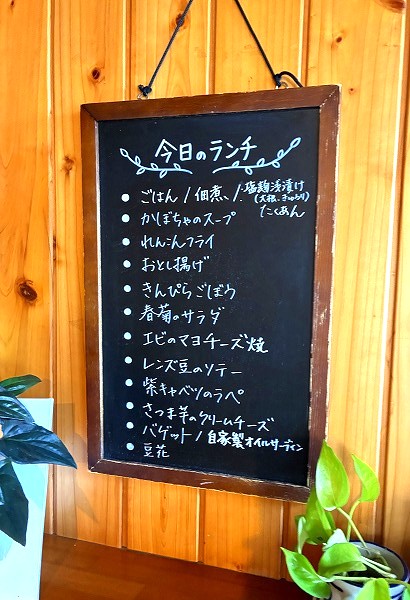 今日のランチ
ごはん / 佃煮 / 塩麹浅漬け
(大根、きゅうり)
たくあん
かぼちゃのスープ
れんこんフライ
おとし揚げ
きんぴらごぼう
春菊のサラダ
エビのマヨチーズ焼
レンズ豆のソテー
紫キャベツのラペ
さつま芋のクリームチーズ
バゲット / 自家製オイルサーディン
豆花